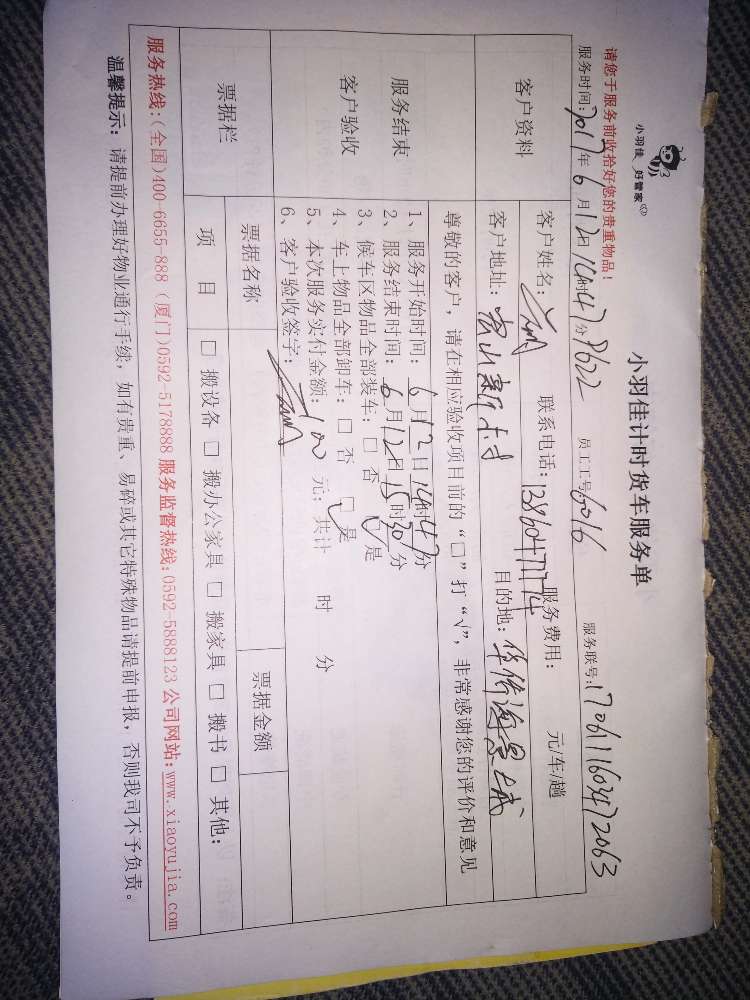 小羽佳 好管家
小羽佳计时货车服务单
请您于服务前收拾好您的贵重物品！
服务时间：2017年6月12日14时47分 P622 员工工号6016 服务联号：170611603472063
客户资料
客户姓名： 联系电话： 服务费用： 元/车/趟
客户地址： 目的地：华侨海景城
尊敬的客户，请在相应验收项目前的“□”打“√”，非常感谢您的评价和意见
服务结束
客户验收
1、服务开始时间：6月12日14时47分
2、服务结束时间：6月12日15时30分
3、候车区物品全部装车：□ 否 ☑ 是
4、车上物品全部卸车：□ 否 ☑ 是
5、本次服务实付金额：100元，共计 时 分
6、客户验收签字：
票据栏
票据名称 票据金额
项 目 □ 搬设备 □ 搬办公家具 □ 搬家具 □ 搬书 □ 其他：
服务热线：(全国)400-6655-888 (厦门)0592-5178888 服务监督热线：0592-5888123 公司网站：www.xiaoyujia.com
温馨提示：请提前办理好物业通行手续，如有贵重、易碎或其它特殊物品请提前申报，否则我司不予负责。